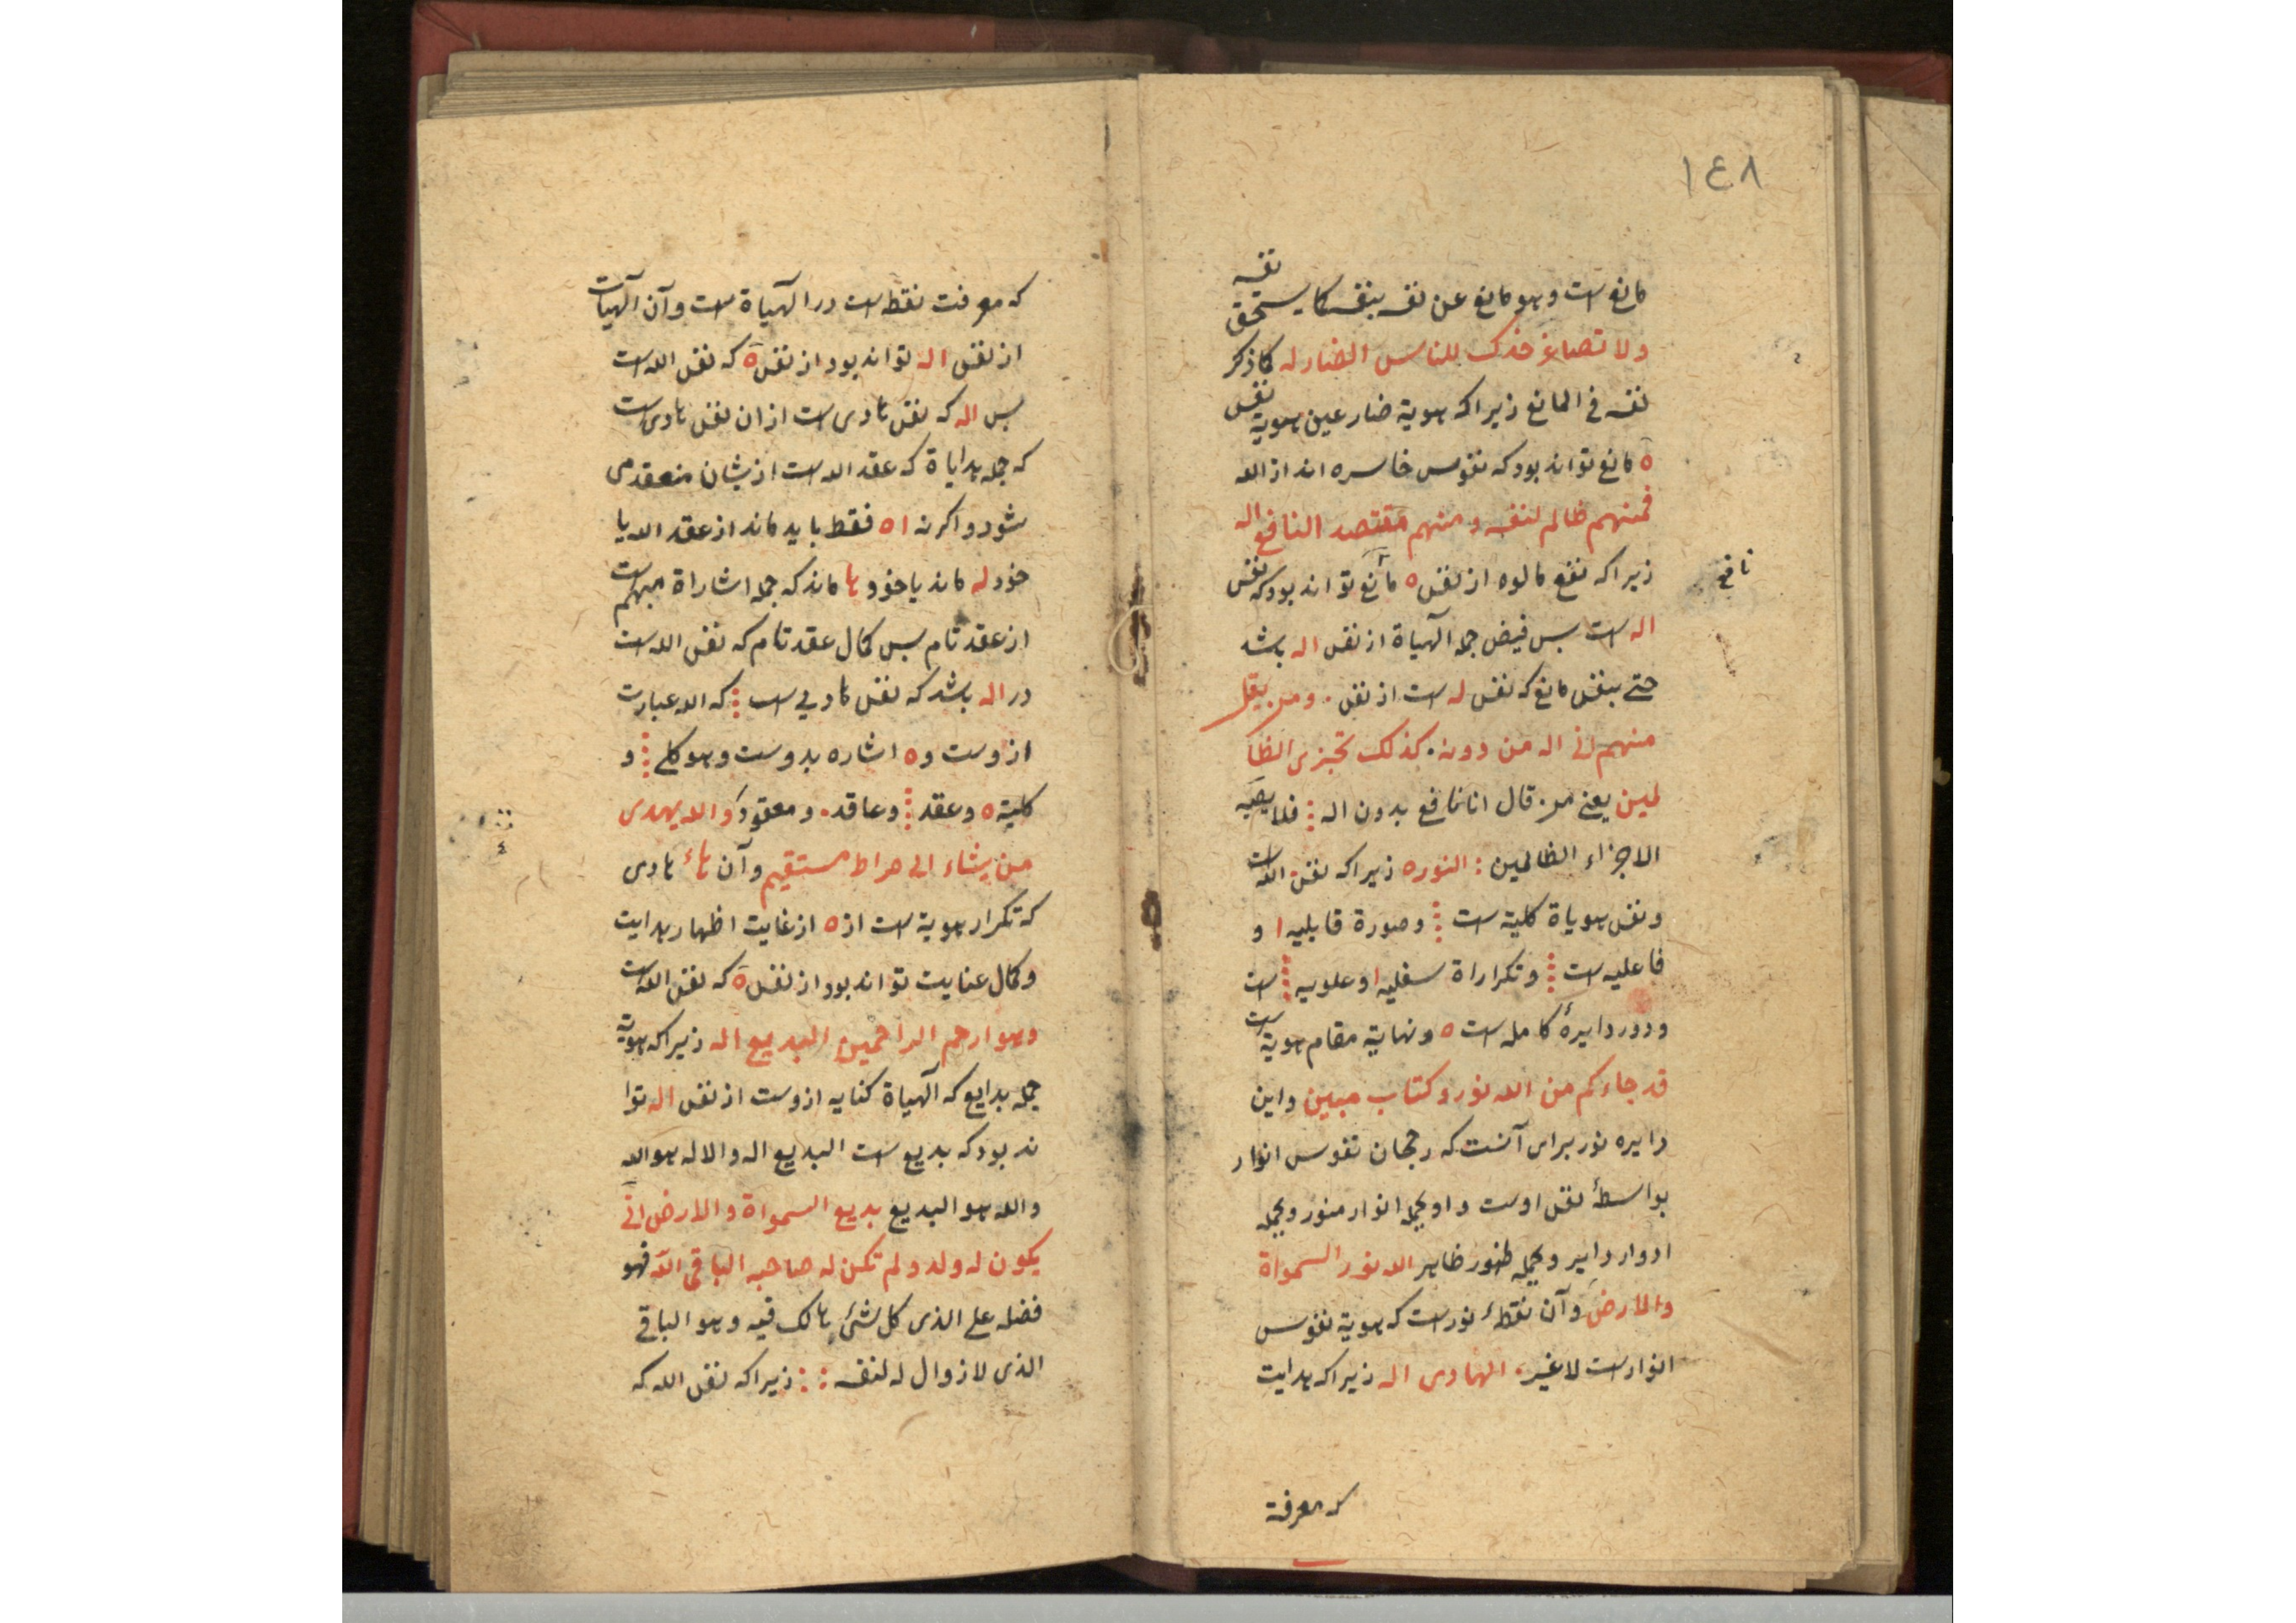 ١٤٨
مانع است وهو مانع عن نفسه بنفسه کما یستحق نفسه
ولا تصاعر خدک للناس الضار له کما ذکر
نفسه فی المانع زیرا که هویة ضار عین هویة نفس
ه مانع تواند بود که نفوس خاسره اند از الله
فمنهم ظالم لنفسه ومنهم مقتصد النافع اله
زیرا که نفع مالوه از نفس ه مانع تواند بود که نفس
نافع
اله است بس فیض جمله آلهیاة از نفس اله باشد
حتی بنفس مانع که نفس له است از نفس . ومن یقل
منهم انی اله من دونه . کذلک نجزی الظا
لمین یعنی من قال انا نافع بدون اله فلا یصیبه
الا جزاء الظالمین النوره زیرا که نفس الله است
ونفس هویاة کلیة است وصورة قابلیه ا و
فاعلیه است وتکراراة سفلیه ا وعلویه است
ودور دایرهٔ کامله است ه ونهایة مقام هویة است
قد جاءکم من الله نور وکتاب مبین واین
دایره نور برای آنست که رجحان نفوس انوار
بواسطهٔ نفس اوست واو بجمله انوار منور وبجمله
ادوار دایر وبجمله ظهور ظاهر الله نور السمواة
والارض وآن نقطهٔ نور است که هویة نفوس
انوار است لاغیر . الهادی اله زیرا که هدایت
که معرفة
که معرفت نقطه است در آلهیاة است وآن آلهیات
از نفس اله تواند بود از نفس ه که نفس الله است
بس اله که نفس هادی است از ان نفس هادی است
که جمله هدایاة که عقد الله است ازیشان منعقد می
شود واکرنه ا ه فقط باید ماند از عقد الله یا
خود له ماند یا خود ها ماند که جمله اشاراة مبهم است
از عقد تام بس کمال عقد تام که نفس الله است
در اله باشد که نفس هادی است که الله عبارت
ازوست و ه اشاره بدوست وهو کلی و
کلیة ه وعقد وعاقد . ومعقود والله یهدی
من یشاء الی صراط مستقیم وآن هاء هادی
که تکرار هویة است از ه از غایت اظهار هدایت
وکمال عنایت تواند بود از نفس ه که نفس الله است
وهو ارحم الراحمین البدیع اله زیرا که هویة
جمله بدایع که آلهیاة کنایه ازوست از نفس اله توا
ند بود که بدیع است البدیع اله والاله هو الله
والله هو البدیع بدیع السمواة والارض انی
یکون له ولد ولم تکن له صاحبه الباقی اله فهو
فضله علی الذی کل شیء هالک فیه وهو الباقی
الذی لا زوال له لنفسه زیرا که نفس الله که